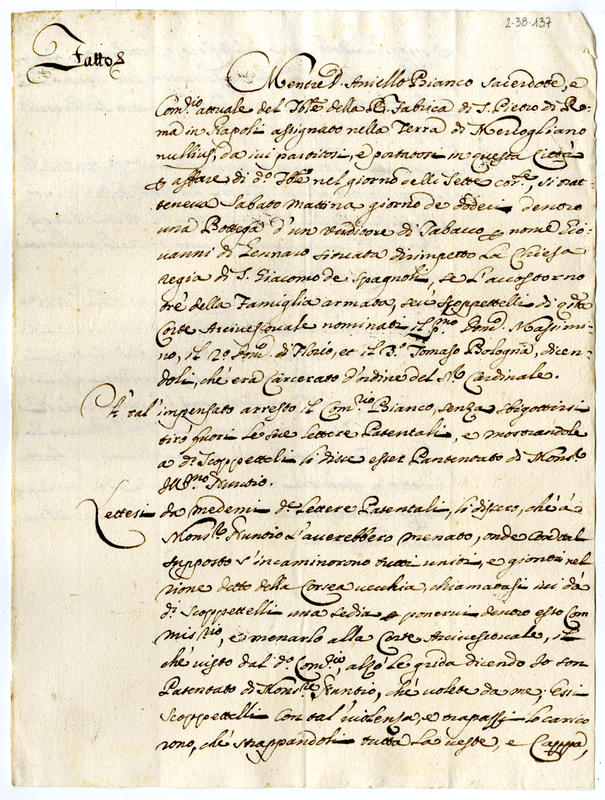 2-38-137
Fatto
Mentre D. Aniello Bianco Sacerdote, e
Com.rio attuale del Tb.le della R. Fabrica di S. Pietro di Ro-
ma in Napoli assignato nella Terra di Mercogliano
nullius, da ivi partitosi, e portatosi in questa Città
p affare di d.o Tb.le nel giorno delli Sette cor.te, si trat-
teneva Sabato mattina giorno de dodeci dentro
una Bottega d'un venditore di Tabacco p nome Gio-
vanni di Gennaro situata dirimpetto La Chiesa
regia di S. Giacomo de Spagnoli, se L'accostorno
trè della Famiglia armata, seu Scoppettelli di q.sta
Corte Arcivescovale nominati il p.mo Massimi-
no, il 2.o di Florio, et il 3.o Tomaso Bologna, dicen-
doli, chè era Carcerato d'ordine del Cardinale.
A' tal' impensato arresto il Com.rio Bianco, senza sbigottirsi
tirò fuori le sue lettere Patentali, e mostrandole
a d.i Scoppettelli li disse esser Pantentato di Mons.r
Ill.mo Nuntio.
Lettesi da medemi d.e Lettere Patentali, li dissero, chè à
Mons.r Nuntio L'averebbero menato, onde con tal
supposto s'incaminorono tutti uniti, e gionti nel
rione detto della Corsea vecchia, chiamatasi ivi da
d.i Scoppettelli una sedia p ponervi dentro esso Com
mis.rio, e menarlo alla Corte Arcivescovale, il
chè visto dal d.o Com.rio, alzò le grida dicendo Io son
Patentato di Mons.r Nuntio, chè volete da me: Essi
Scoppettelli con tal violenza, e trapazzi lo carico
rono, chè strappandoli tutta La veste, e Cappa,